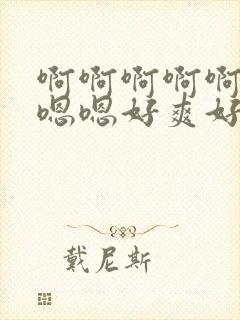 啊啊啊啊啊
嗯嗯好爽好
戴尼斯